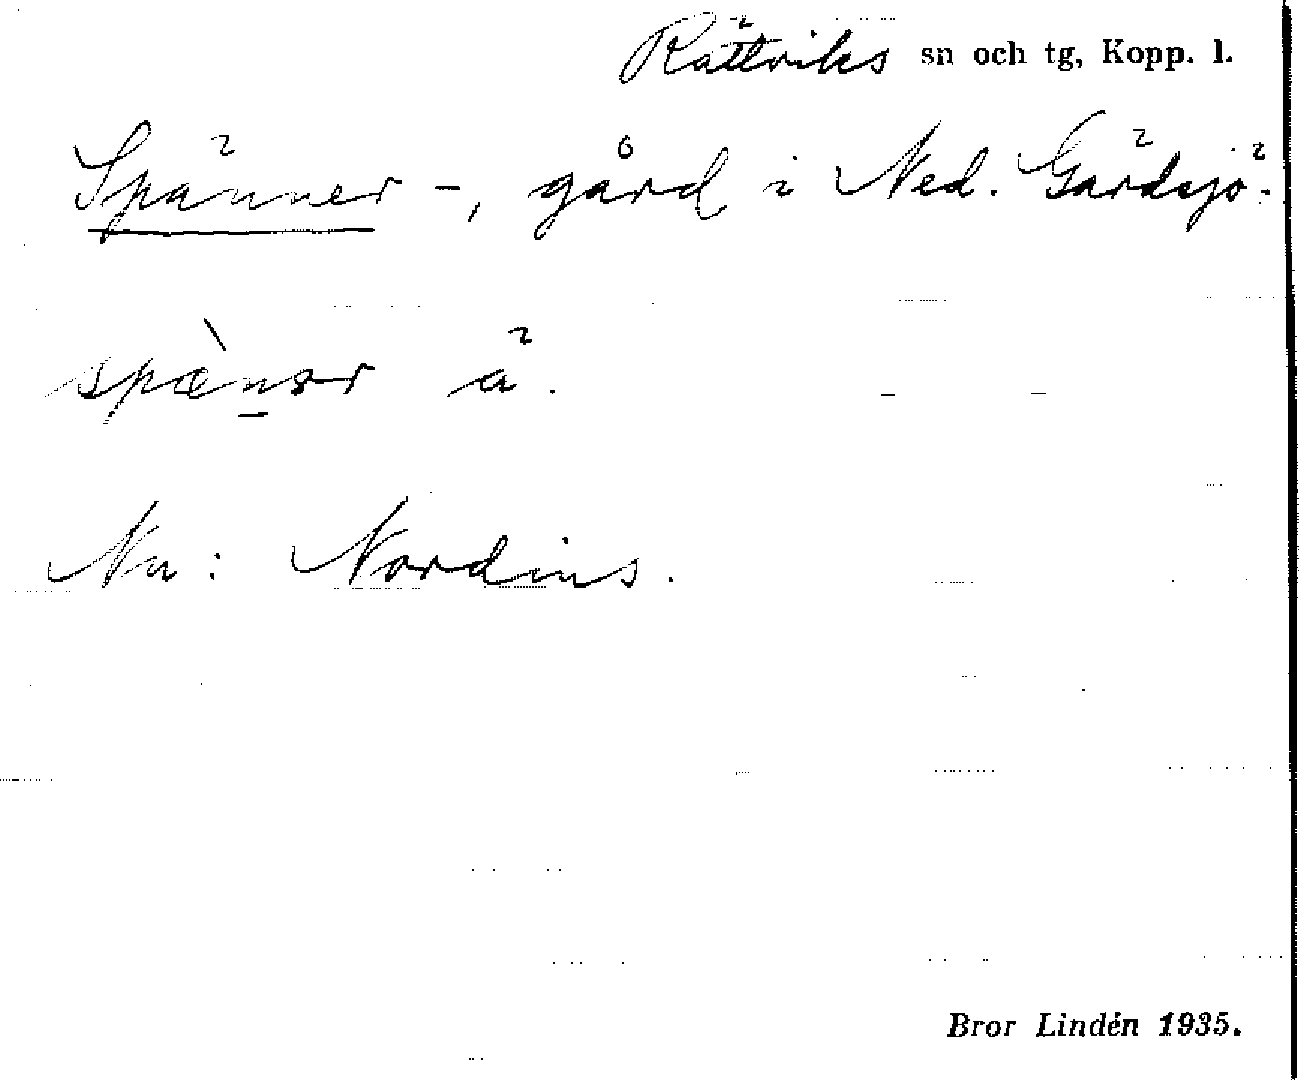 Rättviks sn och tg, Kopp. l.
Spänner-, gård i Ned. Gärdsjö.
spæ̀nər ä.
Nu: Nordins.
Bror Lindén 1935.